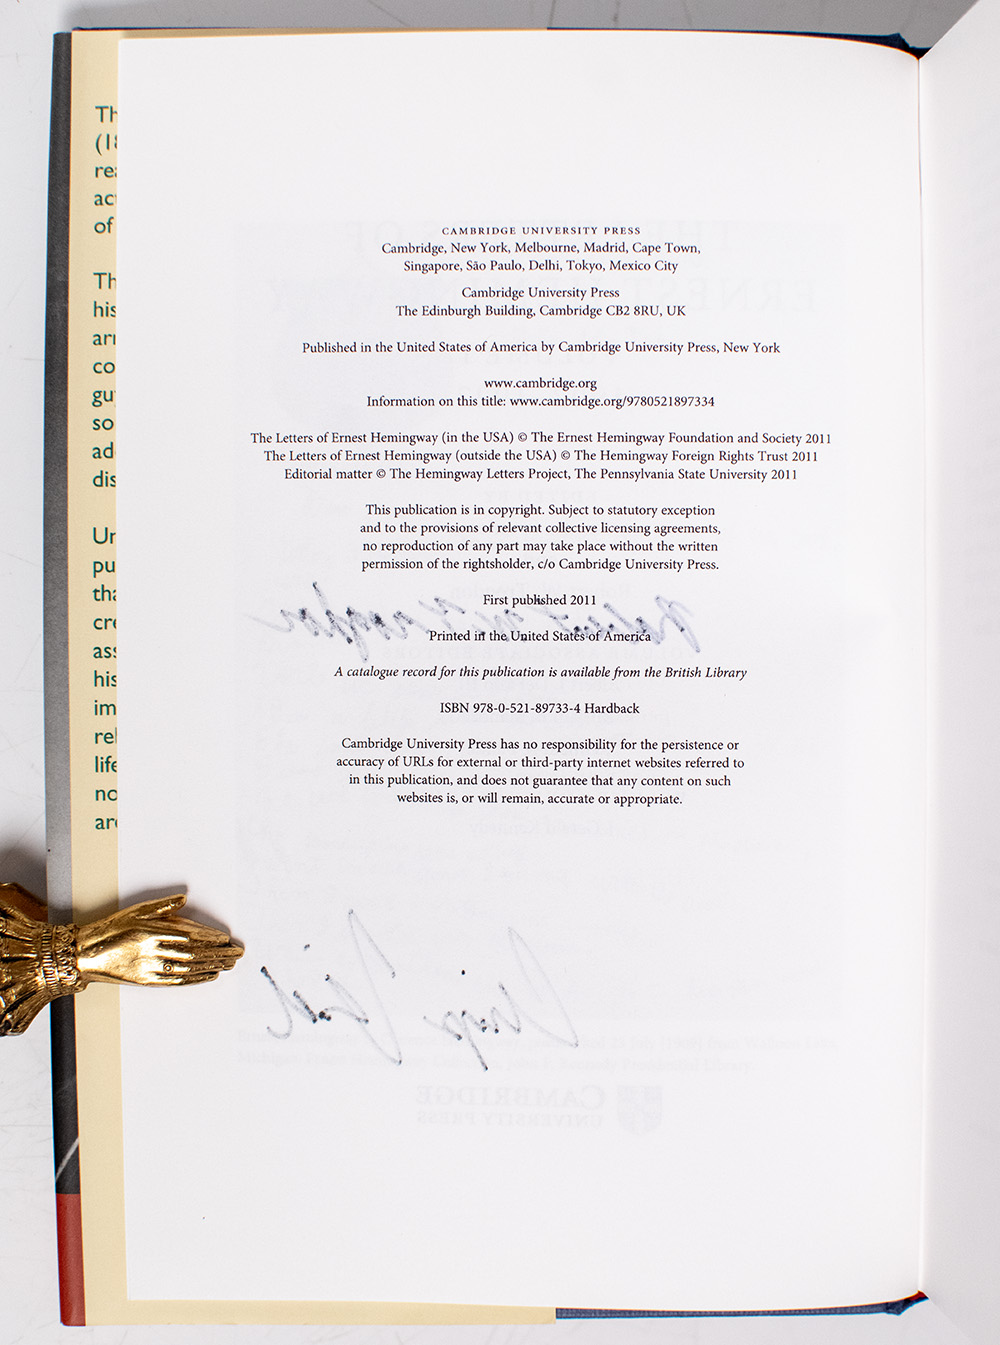 Th
(18
rea
act
of
Th
his
arr
co
gu
so
ad
dis
Un
pu
tha
cre
ass
his
im
rel
life
no
are
CAMBRIDGE UNIVERSITY PRESS
Cambridge, New York, Melbourne, Madrid, Cape Town,
Singapore, São Paulo, Delhi, Tokyo, Mexico City
Cambridge University Press
The Edinburgh Building, Cambridge CB2 8RU, UK
Published in the United States of America by Cambridge University Press, New York
www.cambridge.org
Information on this title: www.cambridge.org/9780521897334
The Letters of Ernest Hemingway (in the USA) © The Ernest Hemingway Foundation and Society 2011
The Letters of Ernest Hemingway (outside the USA) © The Hemingway Foreign Rights Trust 2011
Editorial matter © The Hemingway Letters Project, The Pennsylvania State University 2011
This publication is in copyright. Subject to statutory exception
and to the provisions of relevant collective licensing agreements,
no reproduction of any part may take place without the written
permission of the rightsholder, c/o Cambridge University Press.
First published 2011
Printed in the United States of America
A catalogue record for this publication is available from the British Library
ISBN 978-0-521-89733-4 Hardback
Cambridge University Press has no responsibility for the persistence or
accuracy of URLs for external or third-party internet websites referred to
in this publication, and does not guarantee that any content on such
websites is, or will remain, accurate or appropriate.
CAMBRIDGE
UNIVERSITY PRESS